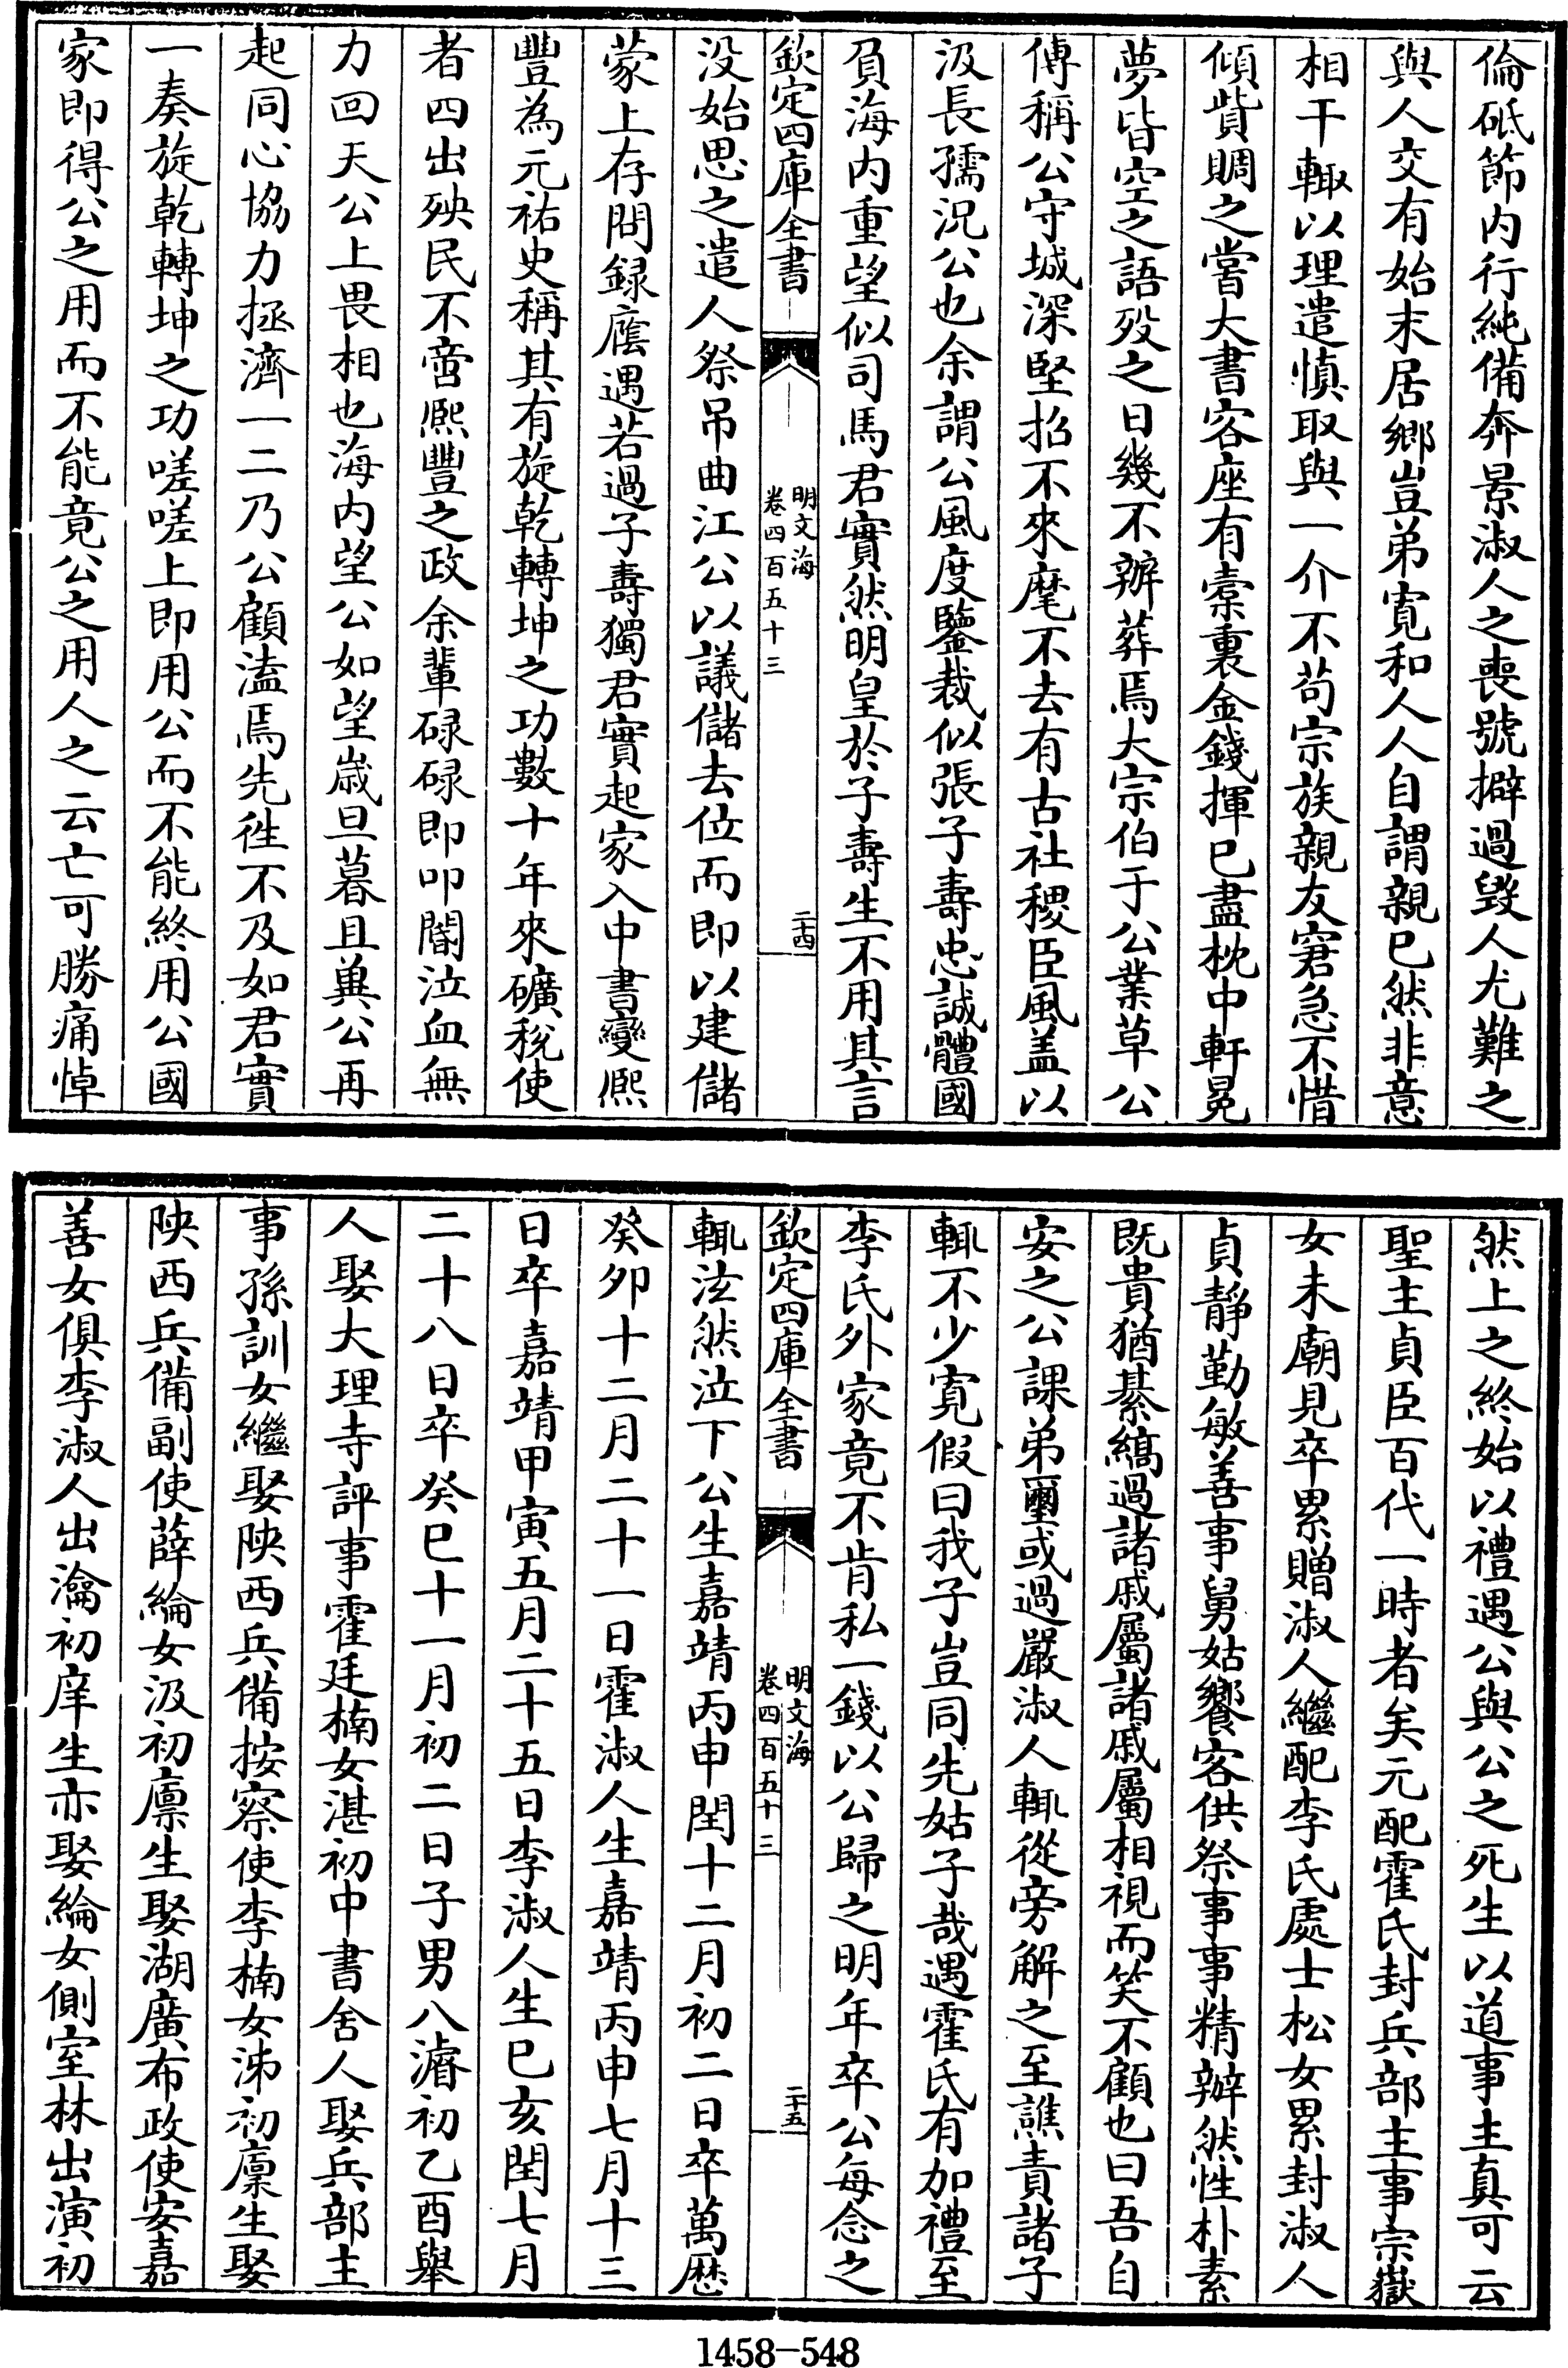 倫砥節内行純備奔景淑人之喪號擗過毀人尤難之
與人交有始末居鄉豈弟寛和人人自謂親已然非意
相干輙以理遣慎取與一介不苟宗族親友窘急不惜
傾貲賙之嘗大書客座有槖裏金錢揮已盡枕中軒冕
夢皆空之語殁之日幾不辦葬焉大宗伯于公業草公
傳稱公守城深堅招不來麾不去有古社稷臣風盖以
汲長孺况公也余謂公風度鑒裁似張子壽忠誠體國
負海内重望似司馬君實然明皇於子壽生不用其言
欽定四庫全書
明文海
卷四百五十三
二十四
没始思之遣人祭吊曲江公以議儲去位而即以建儲
蒙上存問録廕遇若過子壽獨君實起家入中書變熈
豐為元祐史稱其有旋乾轉坤之功數十年來礦稅使
者四出殃民不啻熈豐之政余輩碌碌即叩閽泣血無
力回天公上畏相也海内望公如望歲旦暮且興公再
起同心協力拯濟一二乃公顧溘焉先徃不及如君實
一奏旋乾轉坤之功嗟嗟上即用公而不能終用公國
家即得公之用而不能竟公之用人之云亡可勝痛悼
然上之終始以禮遇公與公之死生以道事主真可云
聖主貞臣百代一時者矣元配霍氏封兵部主事宗嶽
女未廟見卒累贈淑人繼配李氏處士松女累封淑人
貞靜勤敏善事舅姑饗客供祭事事精辦然性朴素
既貴猶綦縞過諸戚屬諸戚屬相視而笑不顧也曰吾自
安之公課弟壐或過嚴淑人輒從旁解之至譙責諸子
輒不少寛假曰我子豈同先姑子哉遇霍氏有加禮至
李氏外家竟不肯私一錢以公歸之明年卒公每念之
欽定四庫全書
明文海
卷四百五十三
二十五
輒泫然泣下公生嘉靖丙申閏十二月初二日卒萬歴
癸卯十二月二十一日霍淑人生嘉靖丙申七月十三
日卒嘉靖甲寅五月二十五日李淑人生已亥閏七月
二十八日卒癸巳十一月初二日子男八濬初乙酉舉
人娶大理寺評事霍廷楠女湛初中書舍人娶兵部主
事孫訓女繼娶陜西兵備按察使李楠女泲初廩生娶
陜西兵備副使薛綸女汲初廪生娶湖廣布政使安嘉
善女俱李淑人出瀹初庠生亦娶綸女側室林出演初
1458-548